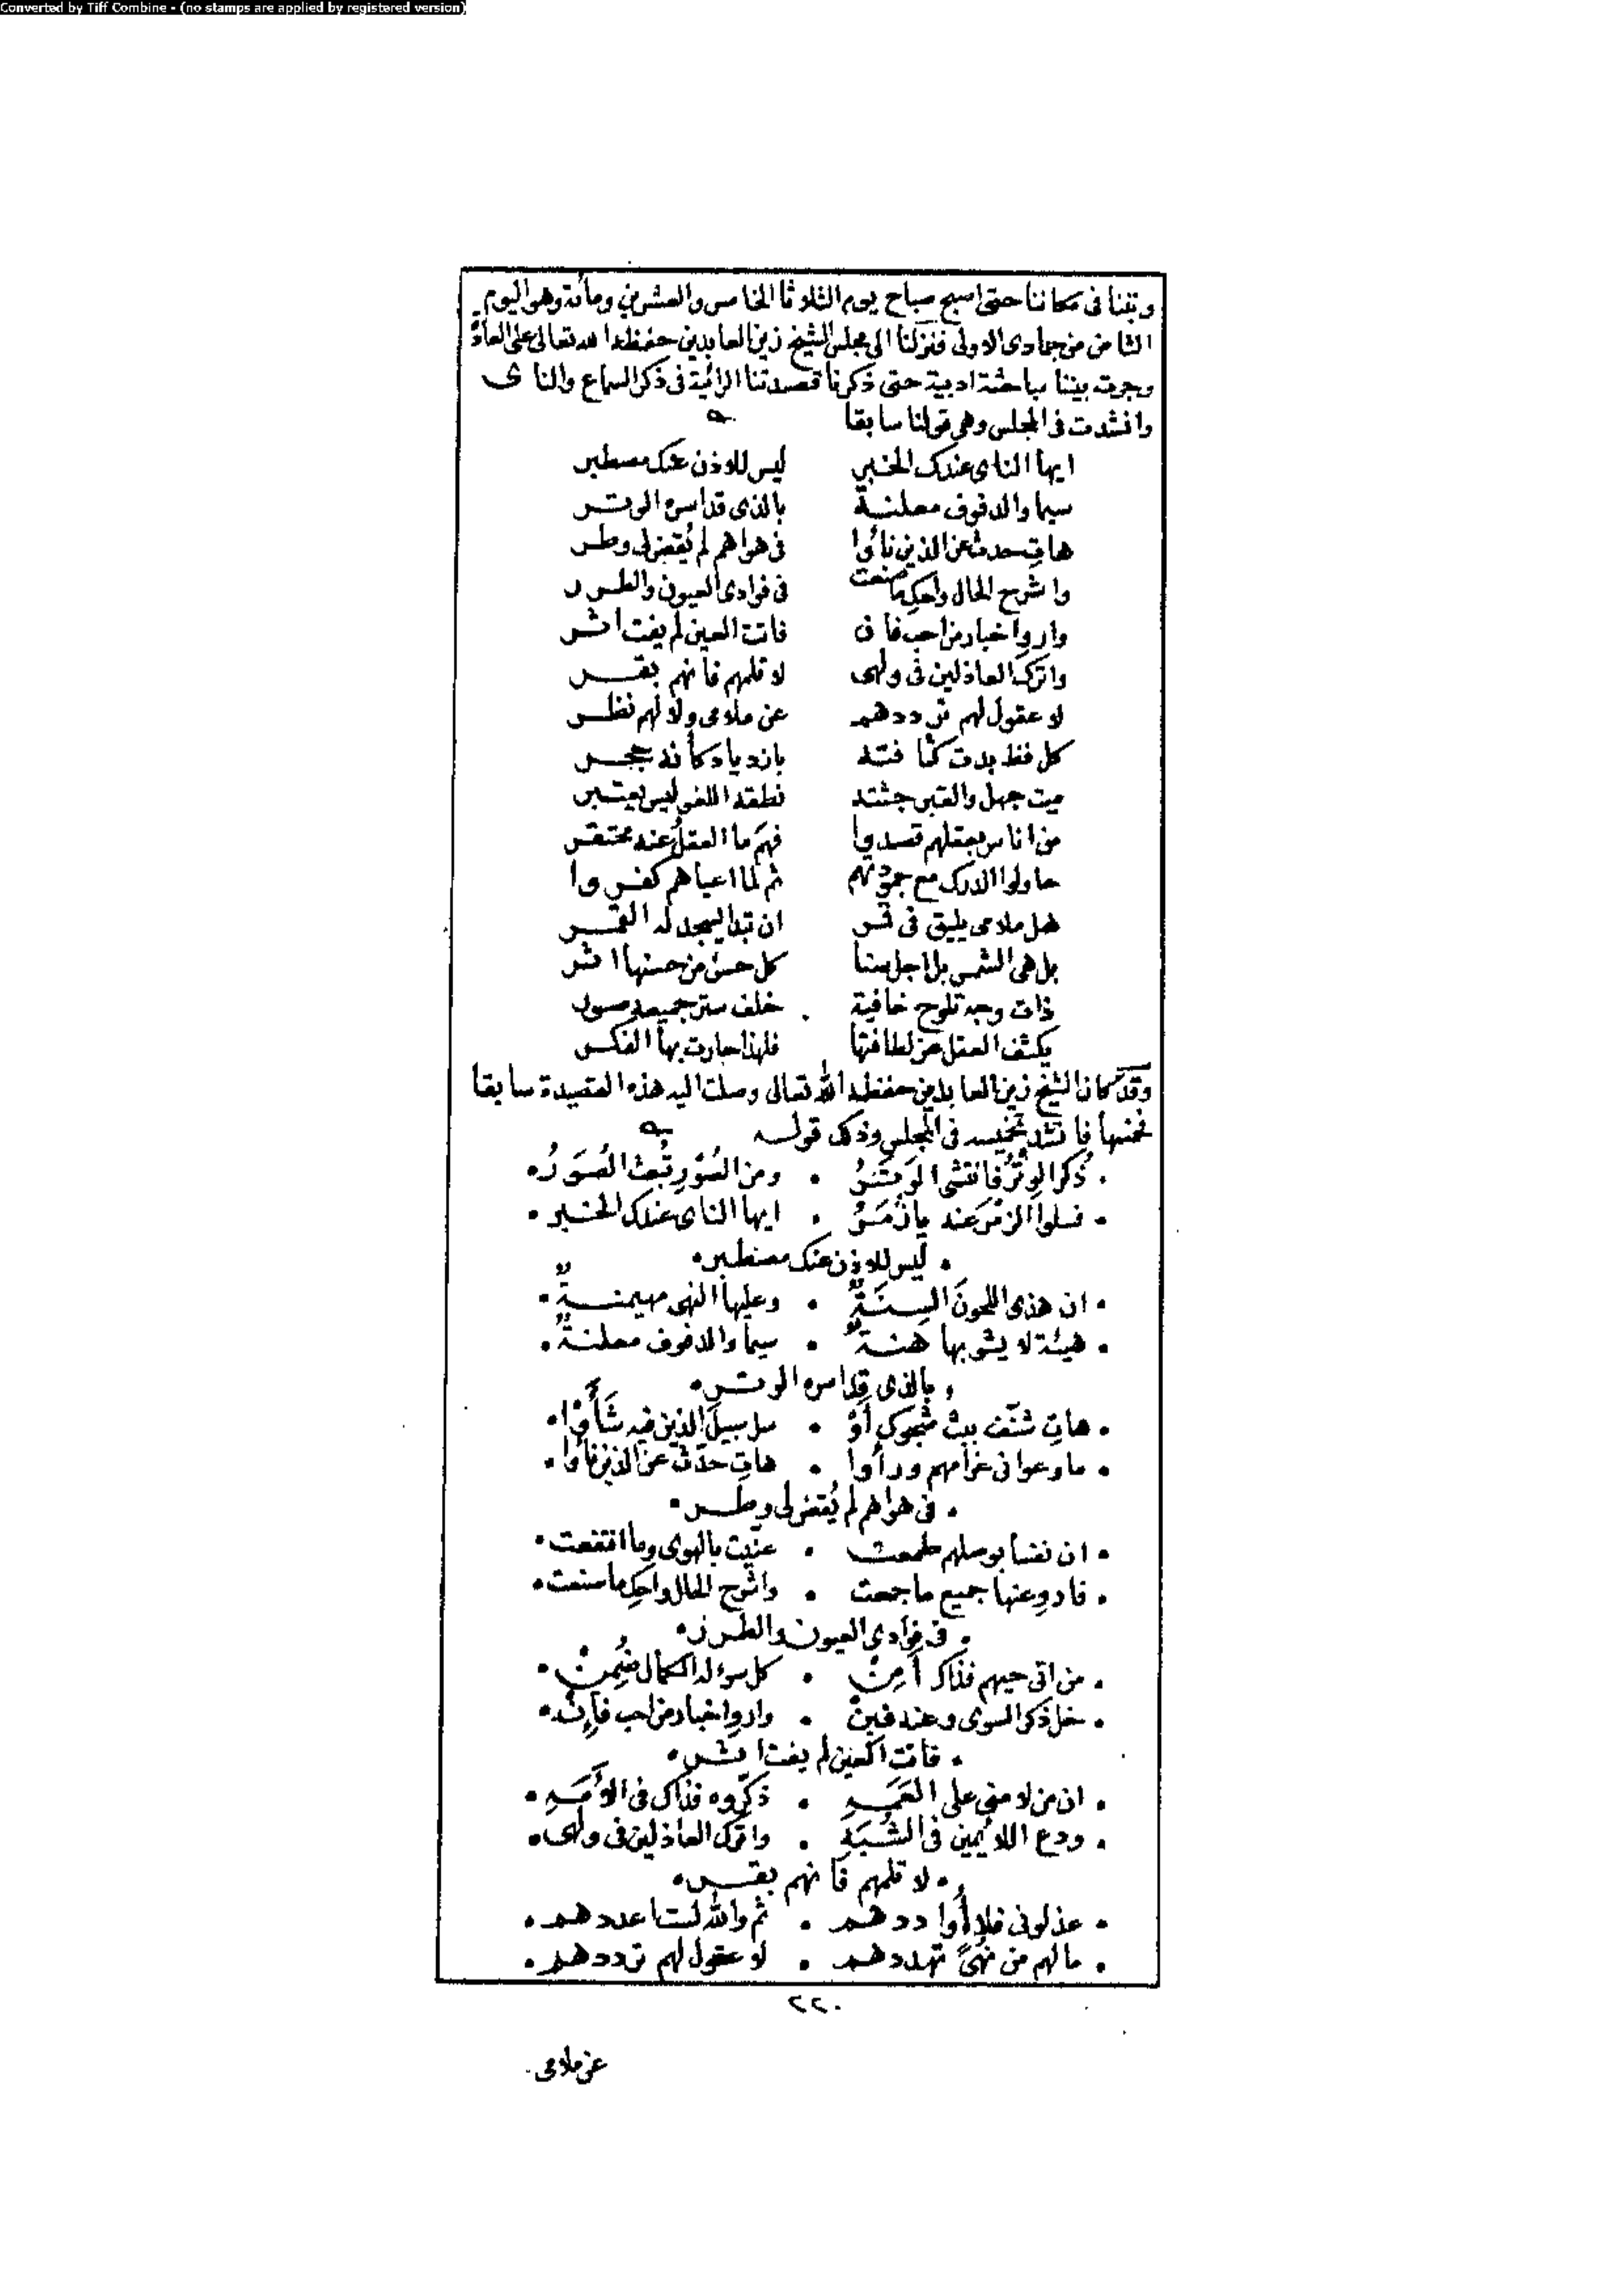 Converted by Tiff Combine - (no stamps are applied by registered version)
وبتنا فى مكاننا حتى اصبح صباح يوم الثلاثا الخامس والعشرين ومائة وهو اليوم
الثامن من جمادى الاولى فنزلنا الى مجلس الشيخ زين العابدين حفظه الله تعالى على العادة
وجرت بيننا مباحثة ادبية حتى ذكرنا قصيدتنا الرائية فى ذكر السماع والناى
وانشدت فى المجلس وهى قولنا سابقا
ايها الناى عندك الخبر ليس للاذن عنك مصطبر
سيما والدفوف معلنة بالذى قد اسره الوتر
هات حدث عن الذين نأوا فى هواهم لم يُقضَ لى وطر
واشرح الحال واحكِ ما صنعت فى فوادى العيون والطرر
واروِ اخبار من احب فان فاتت العين لم يفت اثر
واترك العاذلين فى ولهى لا تلمهم فانهم بقر
لا عقول لهم ترددهم عن ملامى ولا لهم نظر
كل فظ بدت كثافته بازدياد كأنه حجر
ميت جهل والقبر جثته نطقه اللغو ليس يعتبر
من اناس بعقلهم قصدوا فهمَ ما العقلُ عنه محتقر
حاولوا الدرك مع جمودهم ثم لما اعياهم كفروا
هل ملامى يليق فى قمر ان تبدا يسجد له القمر
بل هى الشمس بل اجل سنا كل حسن من حسنها اثر
ذات وجه تلوح خافية خلف ستر جميعه صور
يكثف العقل عن لطافتها فلهذا حارت بها الفكر
وقد كان الشيخ زين العابدين حفظه الله تعالى وصلت اليه هذه القصيدة سابقا
فخمسها فانشد تخميسه فى المجلس وذلك قوله
. ذُكر الوِترُ فانتشى الوَتَرُ . ومن السُوَرِ تُبعث الصُوَرُ .
. فسلوا الزمر عنه يا زُمَرُ . ايها الناى عندك الخبر .
. ليس للاذن عنك مصطبر .
. ان هذى اللحونَ السنةٌ . وعليها النهى مهيمنةٌ .
. هيئة لا يشوبها هنةٌ . سيما والدفوف معلنةٌ .
. بالذى قد اسره الوتر .
. هاتِ شنّف ببث شجوك أوْ . سل سبيلَ الذين فيه شَأَوْا .
. ما رعوا فى غرامهم ورأوا . هاتِ حدّث عن الذين نأوا .
. فى هواهم لم يُقضَ لى وطر .
. ان نفسا بوصلهم طمعت . عنّيت بالهوى وما انتفعت .
. فاروِ عنها جميع ما جمعت . واشرح الحال واحكِ ما صنعت .
. فى فوادى العيون والطرر .
. من اتى حيهم فذاك أَمِنْ . كل سوء له الكمال ضُمِنْ .
. خل ذكر السوى وعنه فبِنْ . واروِ اخبار من احب فإِنْ .
. فاتت العين لم يفت اثر .
. ان من لامنى على العَمَهِ . ذكّروه فذاك فى الأَمَهِ .
. ودع اللائمين فى الشُبَهِ . واترك العاذلين فى ولهى .
. لا تلمهم فانهم بقر .
. عذلونى فلا أُواددهم . ثم والله لست اعددهم .
. ما لهم من نُهىً تهددهم . لا عقول لهم ترددهم .
٢٢٠
عن ملامى